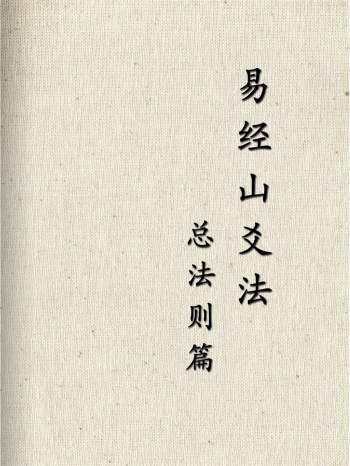 易经山爻法
总法则篇